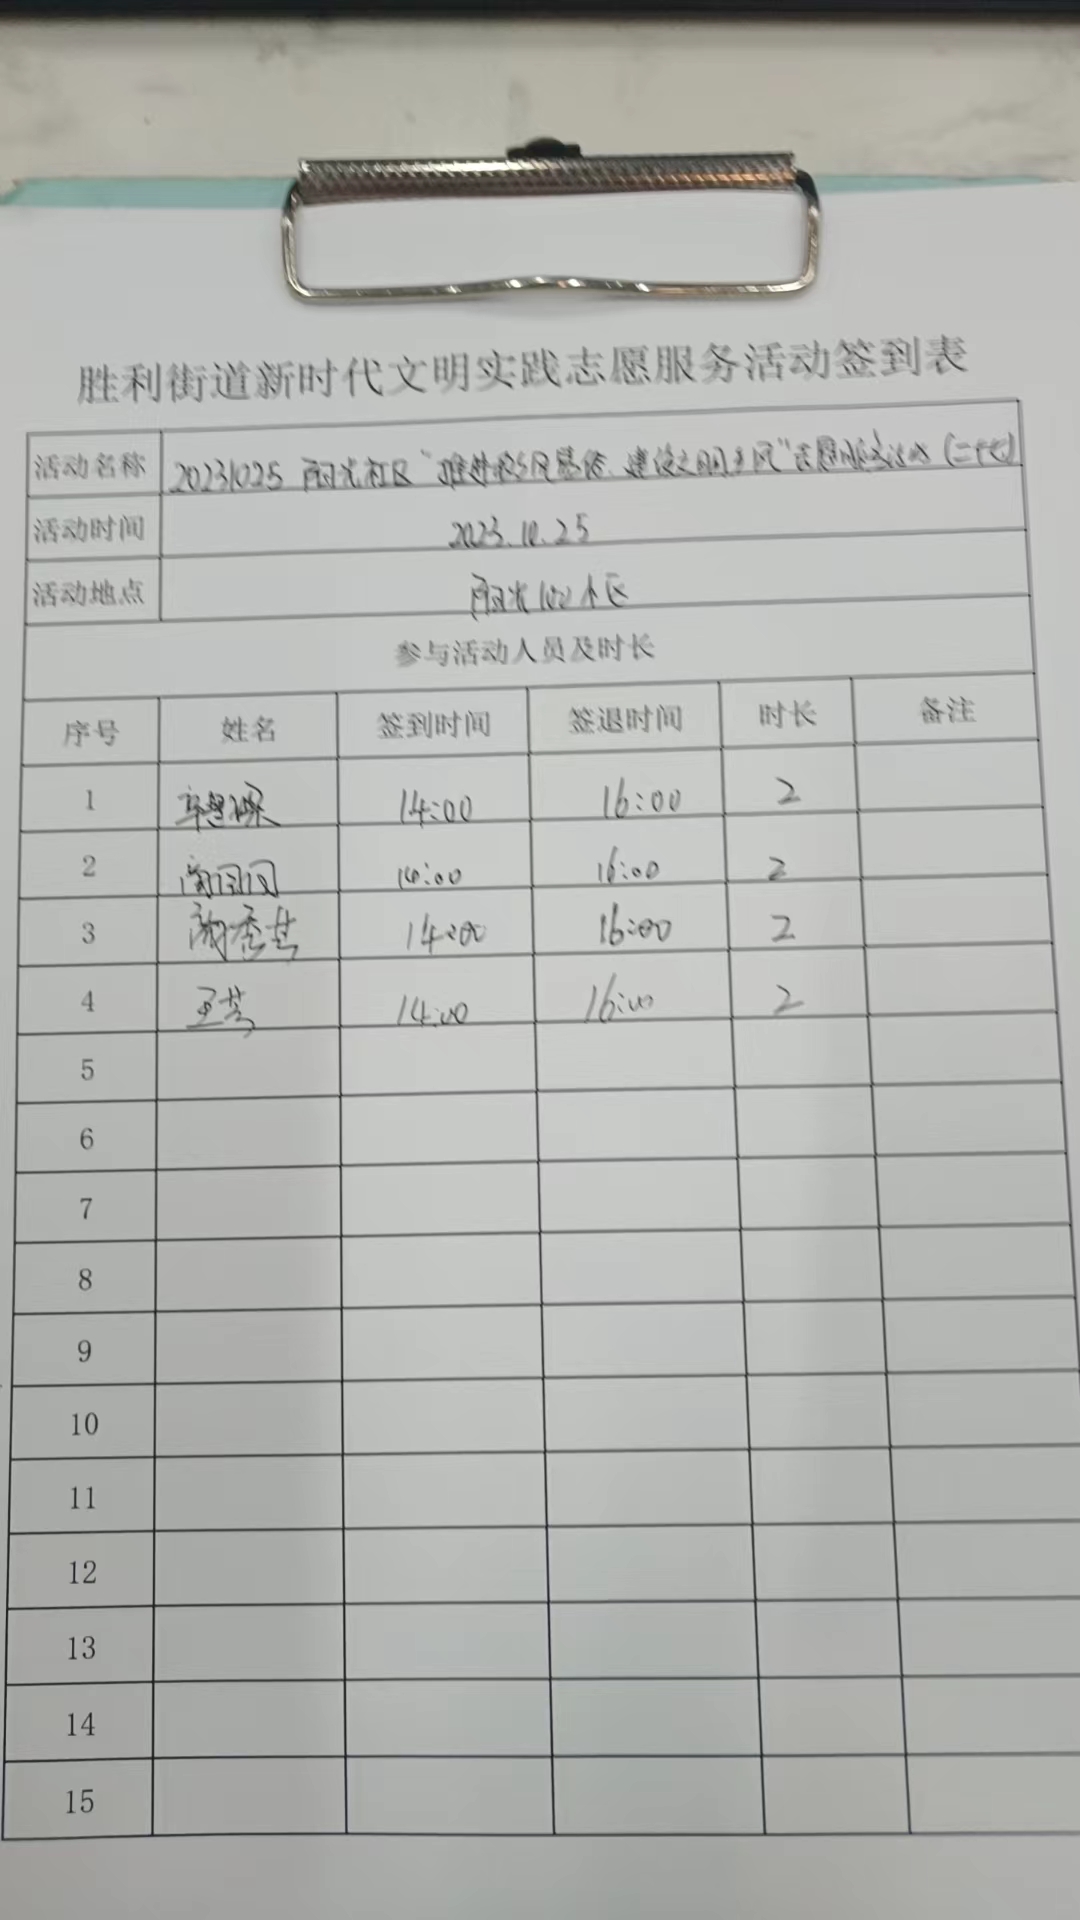 胜利街道新时代文明实践志愿服务活动签到表
活动名称 20231025 阳光社区“推进移风易俗、建设文明乡风”志愿服务活动(二十七)
活动时间 2023.10.25
活动地点 阳光100小区
参与活动人员及时长
序号 姓名 签到时间 签退时间 时长 备注
1 14:00 16:00 2
2 闫闫闫 14:00 16:00 2
3 14:00 16:00 2
4 王芸 14:00 16:00 2
5
6
7
8
9
10
11
12
13
14
15